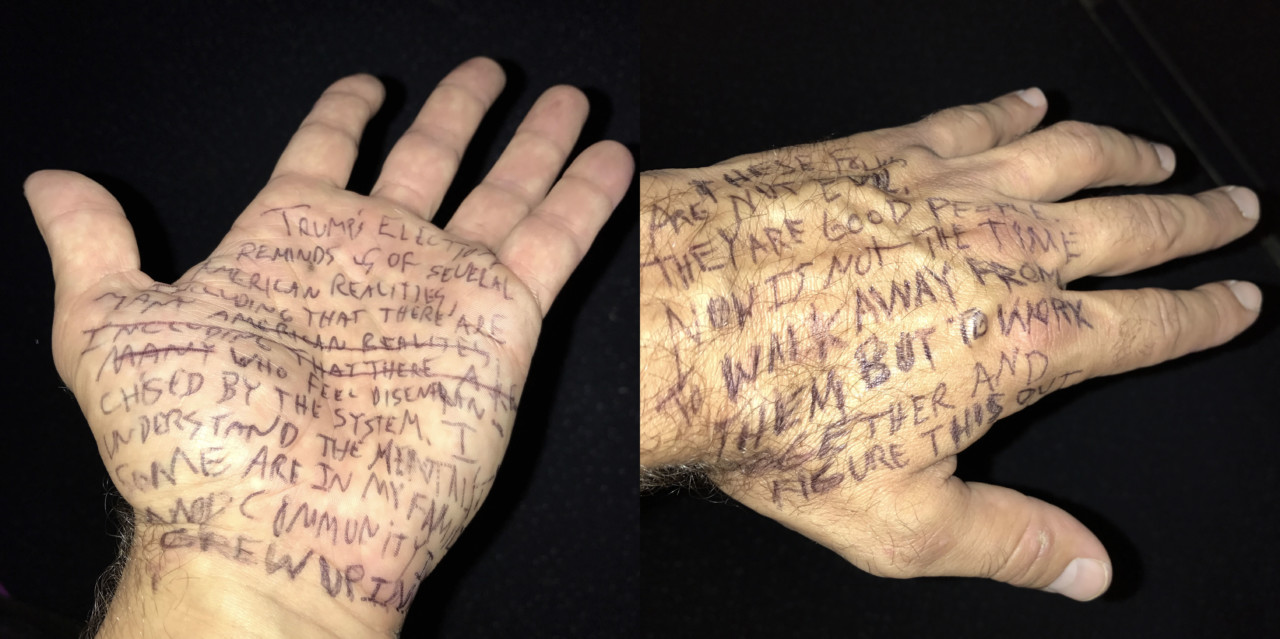 TRUMP'S ELECTION
REMINDS US OF SEVERAL
AMERICAN REALITIES,
INCLUDING THAT THERE ARE
MANY
INCLUDING AMERICAN REALITIES
MANY THAT THERE ARE
WHO FEEL DISENFRAN-
CHISED BY THE SYSTEM. I
UNDERSTAND THE MENTALITY
SOME ARE IN MY FAMILY
AND COMMUNITY I
GREW UP IN
THESE FOLKS
ARE NOT EVIL.
THEY ARE GOOD PEOPLE
NOW IS NOT THE TIME
TO WALK AWAY FROM
THEM BUT TO WORK
TOGETHER AND
FIGURE THIS OUT